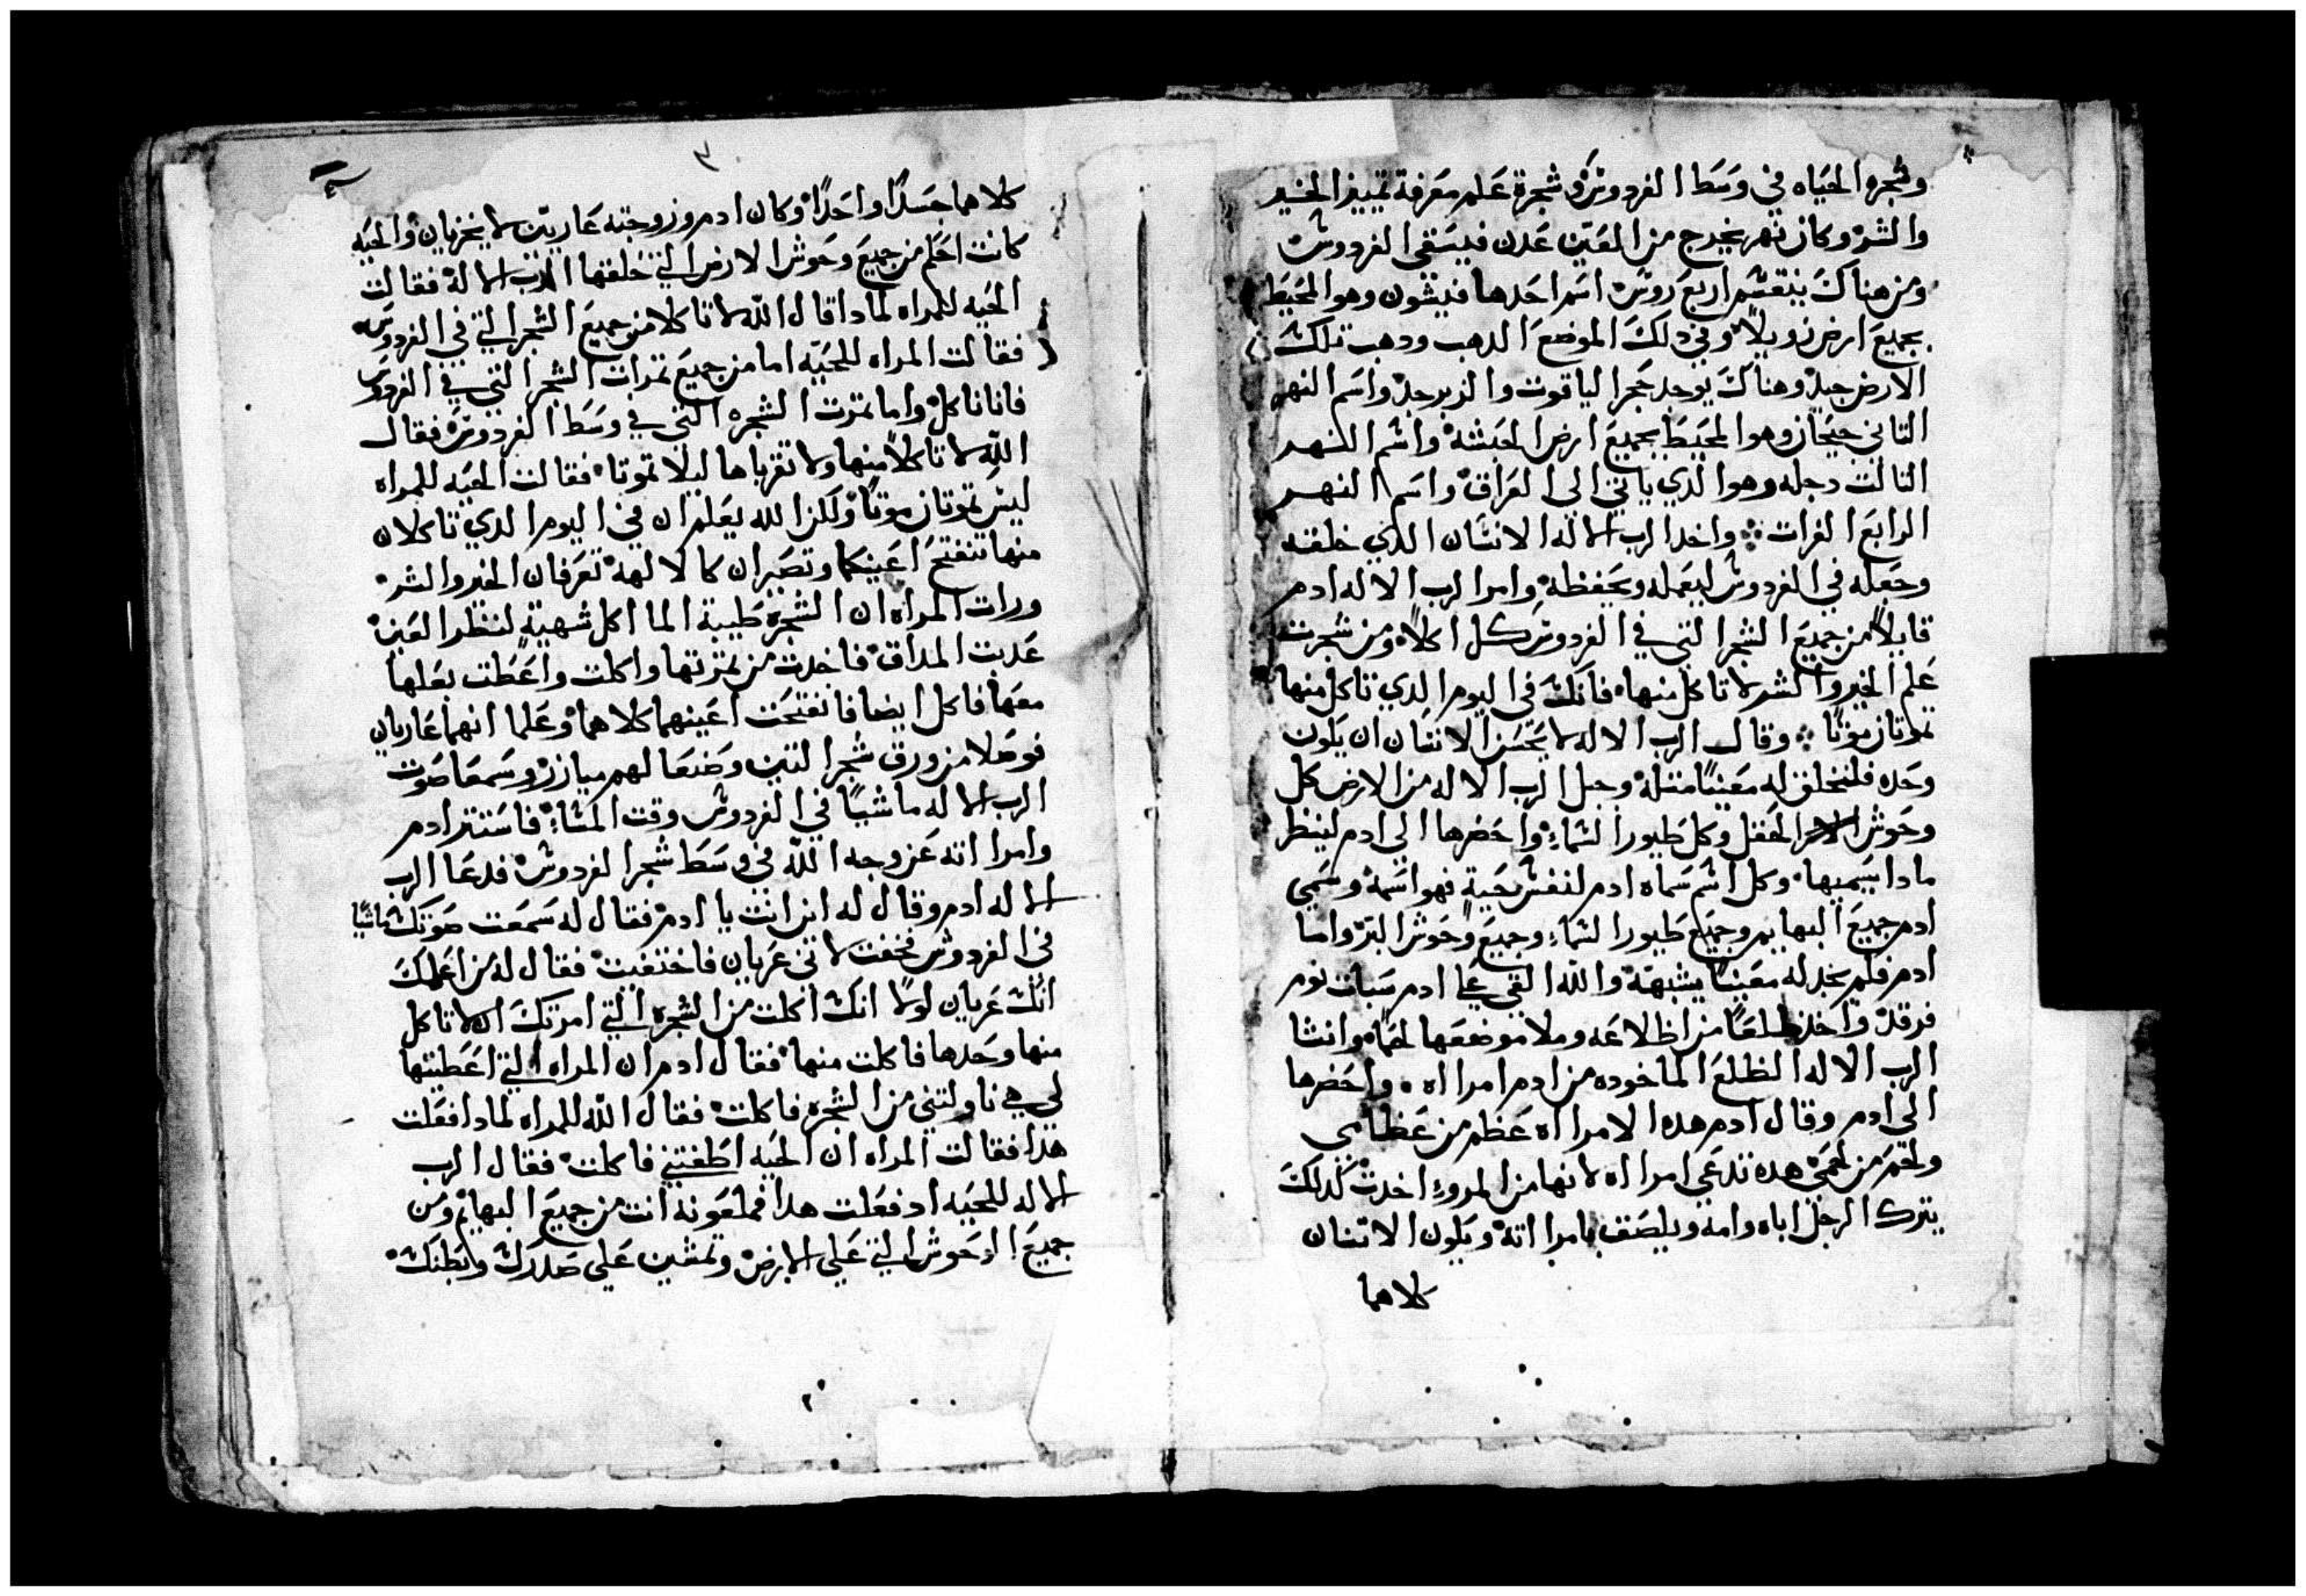 وشجره الحياه في وسط الفردوس وشجرة علم معرفة تمييز الخير
والشر وكان نهر يخرج من المعين عدن فيسقي الفردوس
ومن هناك ينقسم اربع روس اسم احدها فيشون وهو المحيط
بجميع ارض زويلا وفي دلك الموضع الدهب ودهب تلك
الارض جيد وهناك يوجد حجر الياقوت والزبرجد واسم النهر
التاني جيحان وهو المحيط بجميع ارض الحبشه واسم النهر
التالت دجله وهو الدي ياتي الي العراق واسم النهر
الرابع الفرات واخد الرب الاله الانسان الدي خلقه
وجعله في الفردوس ليعمله ويحفظه وامر الرب الاله ادم
قايلا من جميع الشجر التي في الفردوس كل اكلا ومن شجرت
علم الخير والشر لا تاكل منها فانك في اليوم الدي تاكل منها
تموتان موتا وقال الرب الاله لا يحسن الانسان ان يكون
وحده فلنخلق له معينا متله وجبل الرب الاله من الارض كل
وحوش الحقل وكل طيور السماء واحضرها الي ادم لينظر
مادا يسميها وكل اسم سماه ادم لنفس حية فهو اسمه وسمي
ادم جميع البهايم وجميع طيور السماء وجميع وحوش البر واما
ادم فلم يجد له معينا يشبهه والله القي علي ادم سبات نوم
فرقد واخد ظلعا من اظلاعه وملا موضعها لحما وانشا
الرب الاله الظلع الماخوده من ادم امرااه واحضرها
الي ادم وقال ادم هده الامرااه عظم من عظامي
ولحم من لحمي هده تدعي امرااه لانها من المروء اخدت كدلك
يترك الرجل اباه وامه ويلصق بامرااته ويكون الاتنان
كلاهما
٣
كلاهما جسدا واحدا وكان ادم وزوجته عاريين لا يخزيان والحيه
كانت احكم من جميع وحوش الارض التي خلقها الرب الاله فقالت
الحيه للمراه لمادا قال الله لا تاكلا من جميع الشجر التي في الفردوس
فقالت المراه للحيه اما من جميع تمرات الشجر التي في الفردوس
فانا ناكل واما تمرت الشجره التي في وسط الفردوس فقال
الله لا تاكلا منها ولا تقرباها ليلا تموتا فقالت الحيه للمراه
ليس تموتان موتا ولكن الله يعلم ان في اليوم الدي تاكلان
منها تنفتح اعينكما وتصيران كالالهه تعرفان الخير والشر
ورات المراه ان الشجره طيبة الماكل شهية لنظر العين
عدبت المداق فاخدت من تمرتها واكلت واعطت بعلها
معها فاكل ايضا فانفتحت اعينهما كلاهما وعلما انهما عاريان
فوصلا من ورق شجر التين وصنعا لهم ميازر وسمعا صوت
الرب الاله ماشيا في الفردوس وقت المشاء فاستتر ادم
وامرااته عن وجه الله في وسط شجر الفردوس فدعا الرب
الاله ادم وقال له اين انت يا ادم فقال له سمعت صوتك ماشيا
في الفردوس فخفت لاني عريان فاختفيت فقال له من اعلمك
انك عريان لولا انك اكلت من الشجره التي امرتك الا تاكل
منها وحدها فاكلت منها فقال ادم ان المراه التي اعطيتها
لي هي ناولتني من الشجره فاكلت فقال الله للمراه لمادا فعلت
هدا فقالت المراه ان الحيه اطغتني فاكلت فقال الرب
الاله للحيه اد فعلت هدا فملعونه انت من جميع البهايم ومن
جميع الوحوش التي علي الارض وتمشين علي صدرك وبطنك